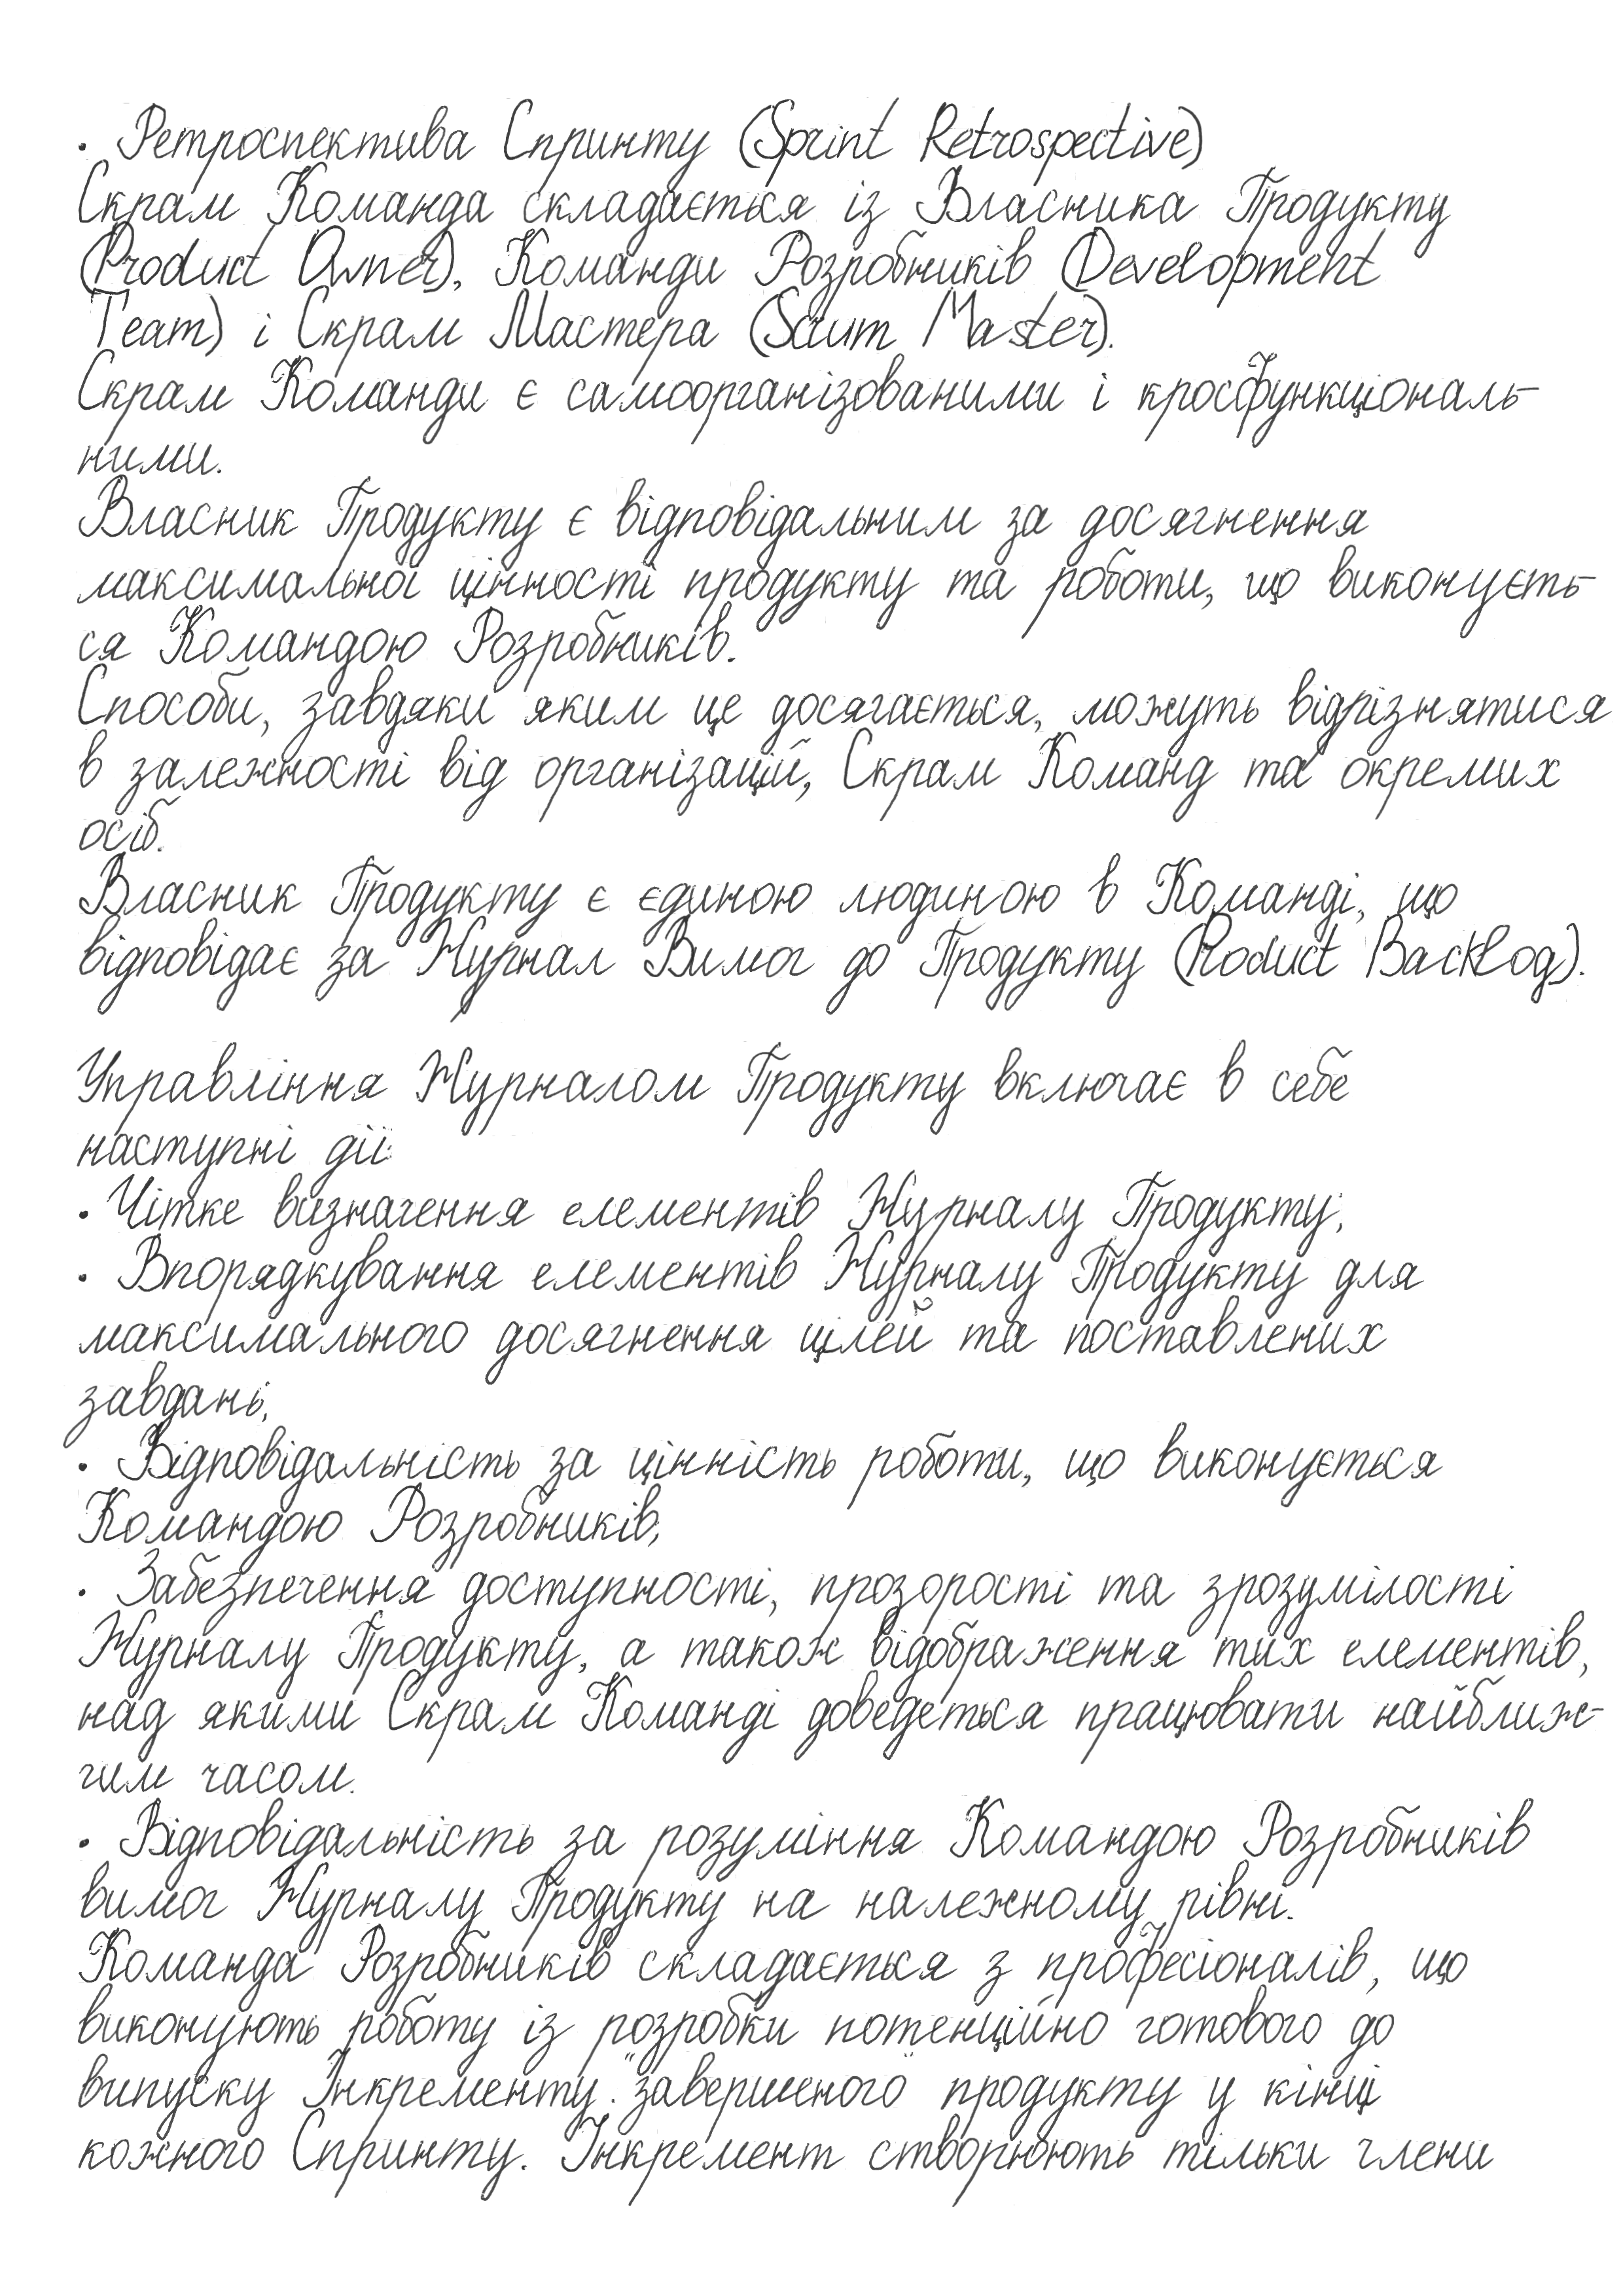 · Ретроспектива Спринту (Sprint Retrospective)
Скрам Команда складається із Власника Продукту
(Product Owner), Команди Розробників (Development
Team) і Скрам Мастера (Scrum Master).
Скрам Команди є самоорганізованими і кросфункціональ-
ними.
Власник Продукту є відповідальним за досягнення
максимальної цінності продукту та роботи, що виконуєть-
ся Командою Розробників.
Способи, завдяки яким це досягається, можуть відрізнятися
в залежності від організацій, Скрам Команд та окремих
осіб.
Власник Продукту є єдиною людиною в Команді, що
відповідає за Журнал Вимог до Продукту (Product Backlog).
Управління Журналом Продукту включає в себе
наступні дії:
· Чітке визначення елементів Журналу Продукту;
· Впорядкування елементів Журналу Продукту для
максимального досягнення цілей та поставлених
завдань;
· Відповідальність за цінність роботи, що виконується
Командою Розробників;
· Забезпечення доступності, прозорості та зрозумілості
Журналу Продукту, а також відображення тих елементів,
над якими Скрам Команді доведеться працювати найближ-
чим часом.
· Відповідальність за розуміння Командою Розробників
вимог Журналу Продукту на належному рівні.
Команда Розробників складається з професіоналів, що
виконують роботу із розробки потенційно готового до
випуску Інкременту "завершеного" продукту у кінці
кожного Спринту. Інкремент створюють тільки члени